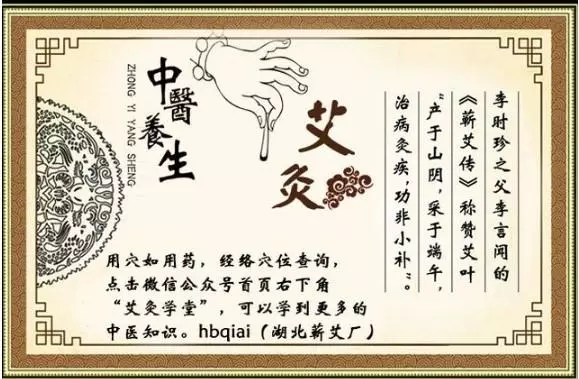 中醫養生
ZHONG YI YANG SHENG
艾灸
李时珍之父李言闻的
《蕲艾传》称赞艾叶
“产于山阴，采于端午，
治病灸疾，功非小补”。
用穴如用药，经络穴位查询，
点击微信公众号首页右下角
“艾灸学堂”，可以学到更多的
中医知识。hbqiai（湖北蕲艾厂）